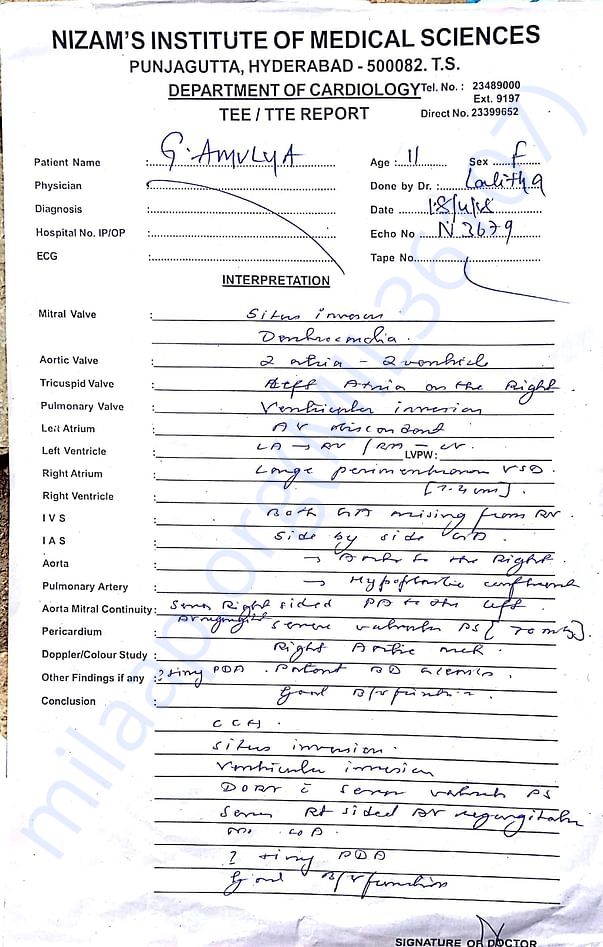 NIZAM'S INSTITUTE OF MEDICAL SCIENCES
PUNJAGUTTA, HYDERABAD - 500082. T.S.
DEPARTMENT OF CARDIOLOGY Tel. No. : 23489000
Ext. 9197
TEE / TTE REPORT Direct No. 23399652
Patient Name : G. AMULYA Age : 11 Sex F
Physician : Done by Dr. : Lalitha
Diagnosis : Date 18/4/18
Hospital No. IP/OP : Echo No N 3679
ECG : Tape No.
INTERPRETATION
Mitral Valve : Situs inversus
Dextrocardia.
Aortic Valve : 2 atria - 2 ventricle
Tricuspid Valve : Atria on the Right
Pulmonary Valve : Ventricular inversion
Left Atrium : AV
Left Ventricle : LA → RV / RA - LV LVPW :
Right Atrium : Large perimembranous VSD
Right Ventricle :
I V S : Both GA arising from RV.
I A S : Side by side GA.
Aorta : → Aorta to the Right
Pulmonary Artery : → Hypoplastic
Aorta Mitral Continuity : Severe Right sided PA to the left.
Pericardium : AV regurgitation severe valvular PS [70
Doppler/Colour Study : Right Aortic arch.
Other Findings if any : ? tiny PDA.
Good B/v function.
Conclusion :
CCHD.
situs inversion.
Ventricular inversion
DORV c severe valvular PS
Severe Rt sided AV regurgitation
No COA.
? tiny PDA
Good B/v function
SIGNATURE OF DOCTOR
milaap.org(MIL_36707)